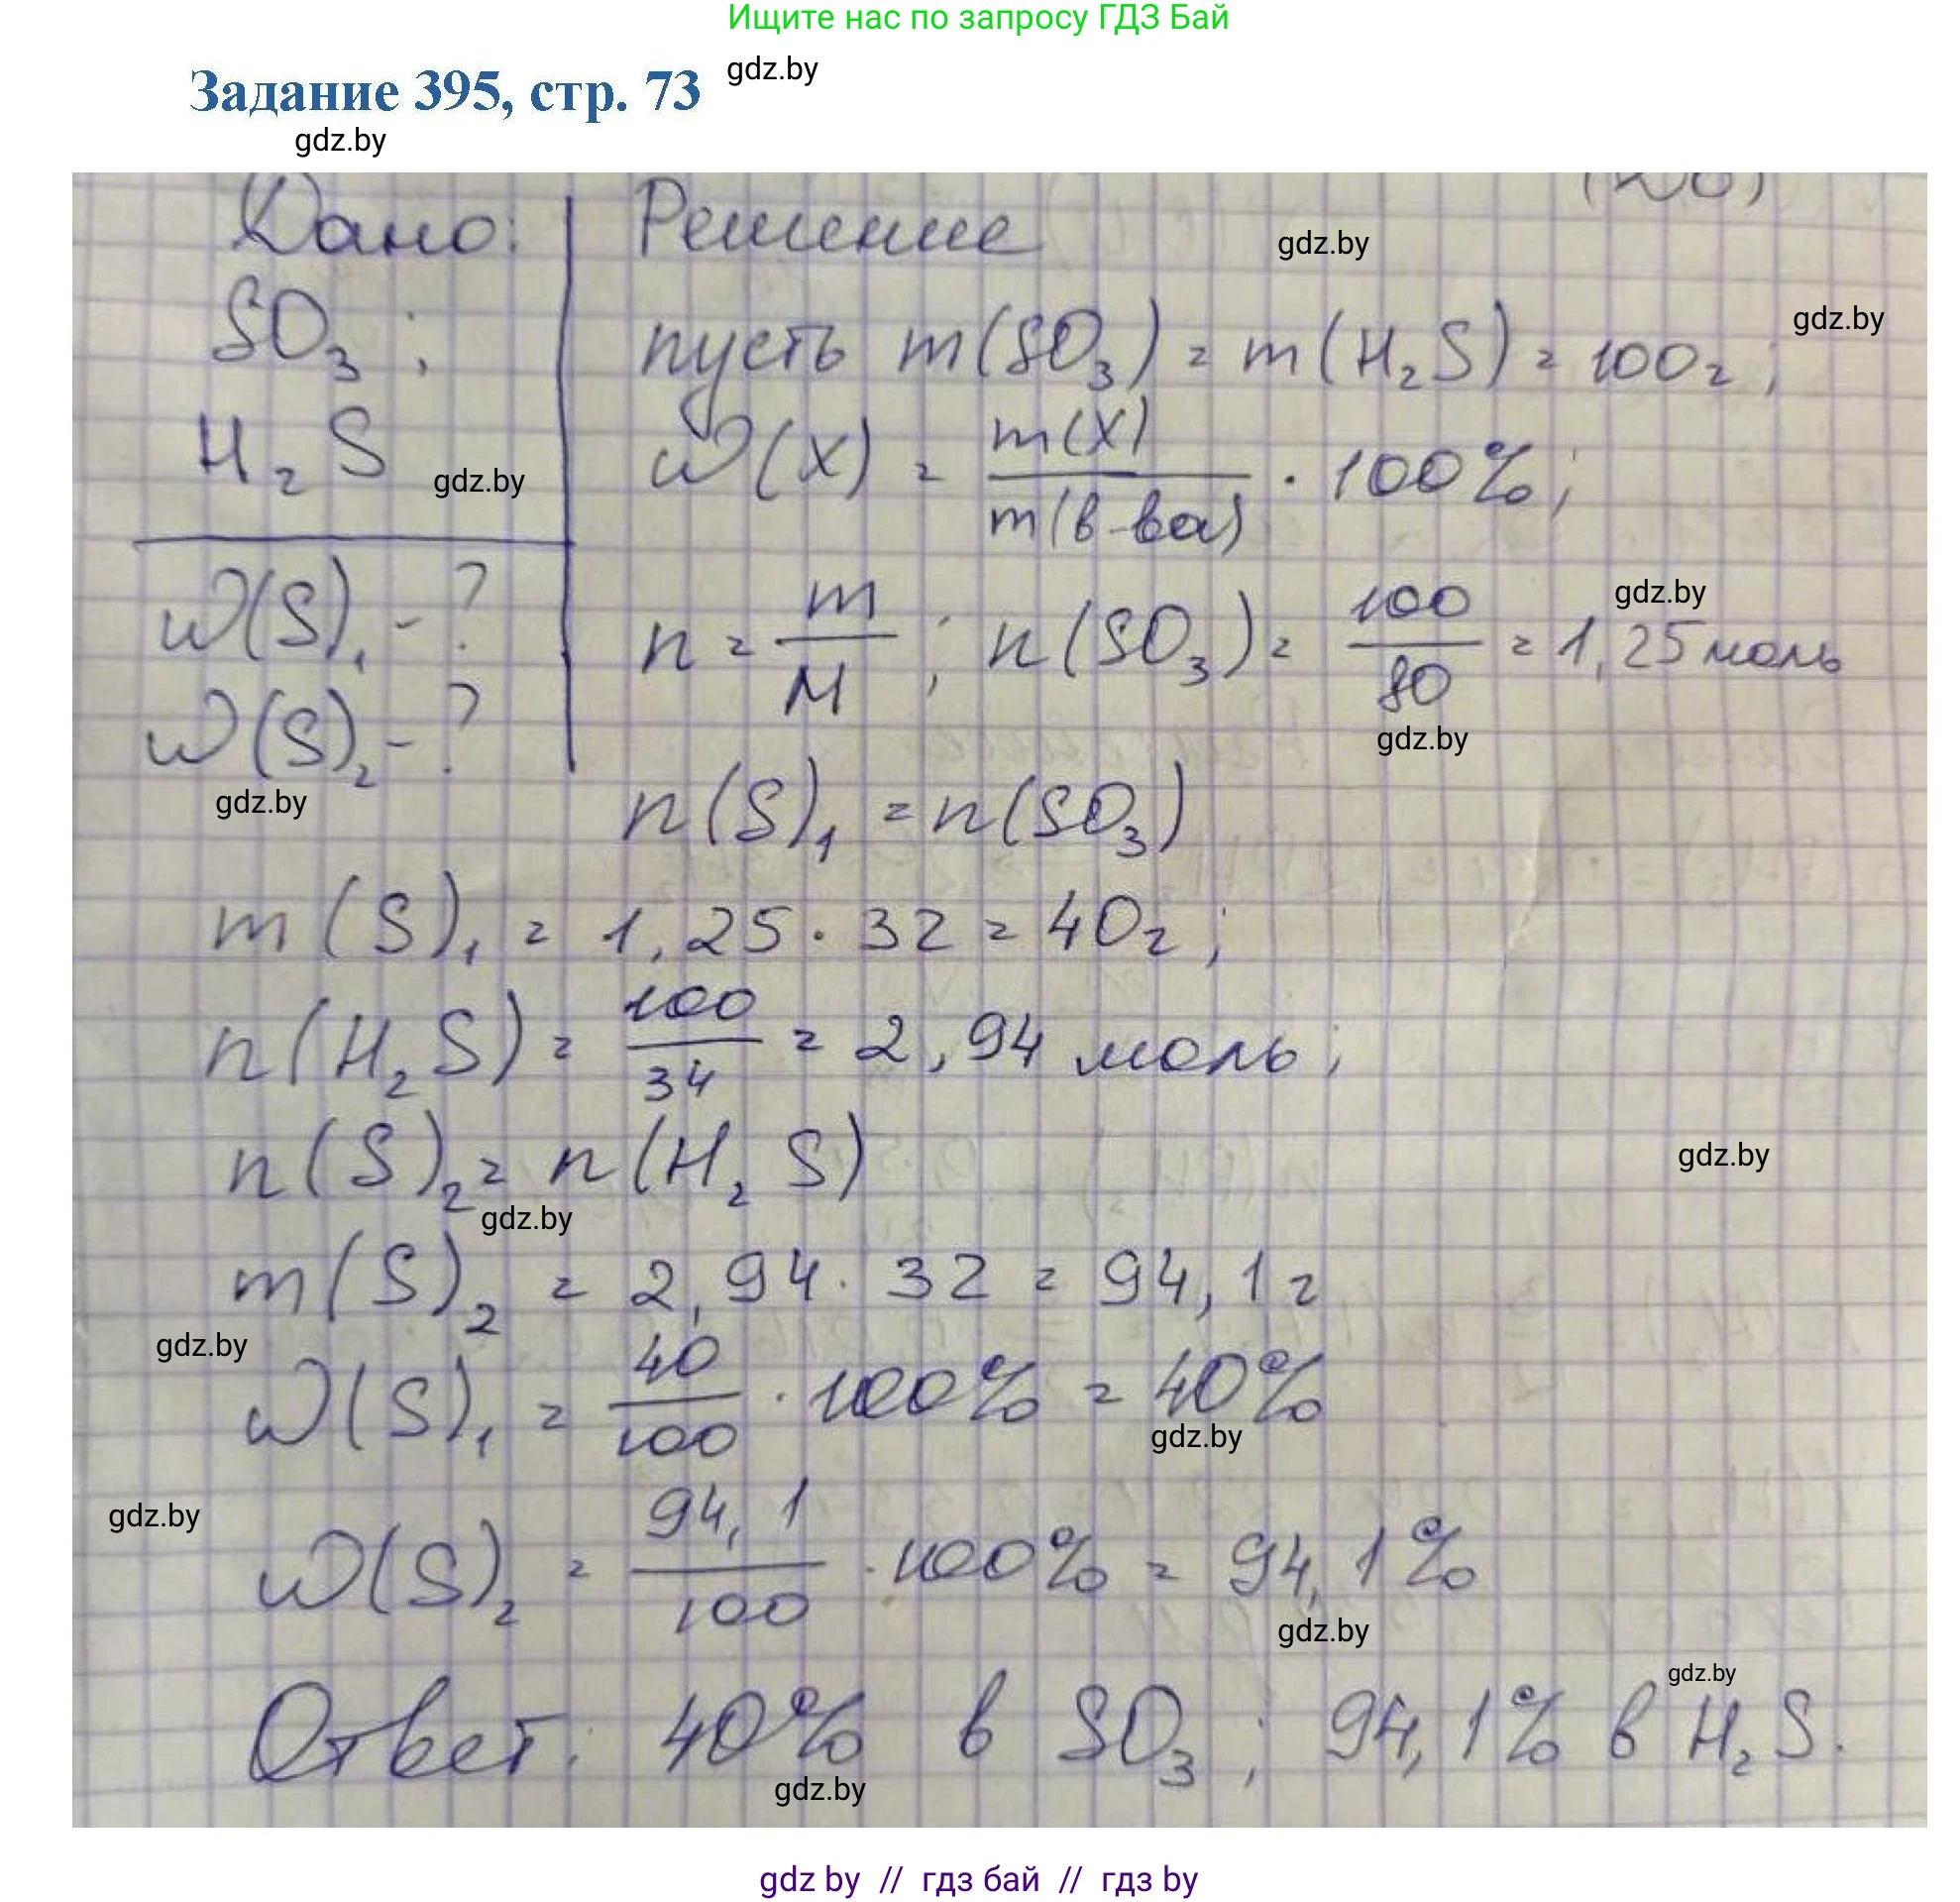 Ищите нас по запросу ГДЗ Бай
Задание 395, стр. 73
gdz.by
gdz.by
Дано:
SO₃;
H₂S
gdz.by
w(S)₁ - ?
w(S)₂ - ?
gdz.by
Решение
gdz.by
gdz.by
пусть m(SO₃) = m(H₂S) = 100г;
w(X) = m(X) / m(в-ва) · 100%;
gdz.by
n = m / M ; n(SO₃) = 100 / 80 = 1,25 моль
gdz.by
n(S)₁ = n(SO₃)
m(S)₁ = 1,25 · 32 = 40г;
n(H₂S) = 100 / 34 = 2,94 моль;
n(S)₂ = n(H₂S)
gdz.by
gdz.by
m(S)₂ = 2,94 · 32 = 94,1г
gdz.by
w(S)₁ = 40 / 100 · 100% = 40%
gdz.by
gdz.by
w(S)₂ = 94,1 / 100 · 100% = 94,1%
gdz.by
gdz.by
Ответ: 40% в SO₃; 94,1% в H₂S.
gdz.by
gdz by // гдз бай // гдз by